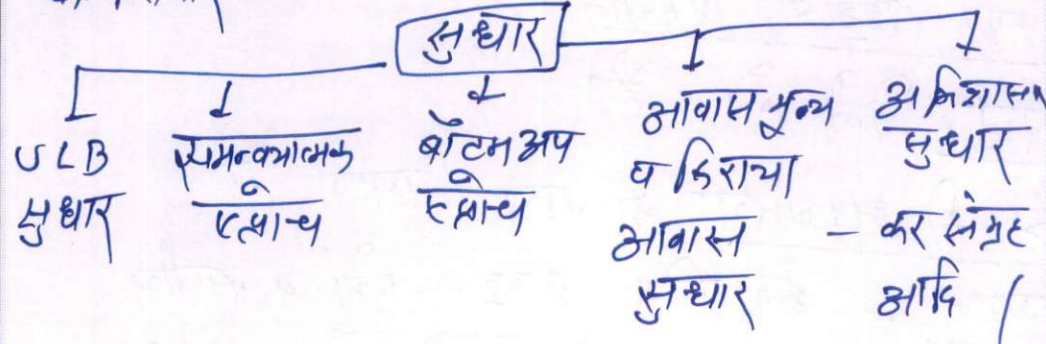 सुधार
ULB
सुधार
समन्वयात्मक
एप्रोच
बॉटम अप
एप्रोच
आवास मूल्य
व किराया
आवास
सुधार
सुधार
- कर संग्रह
आदि /